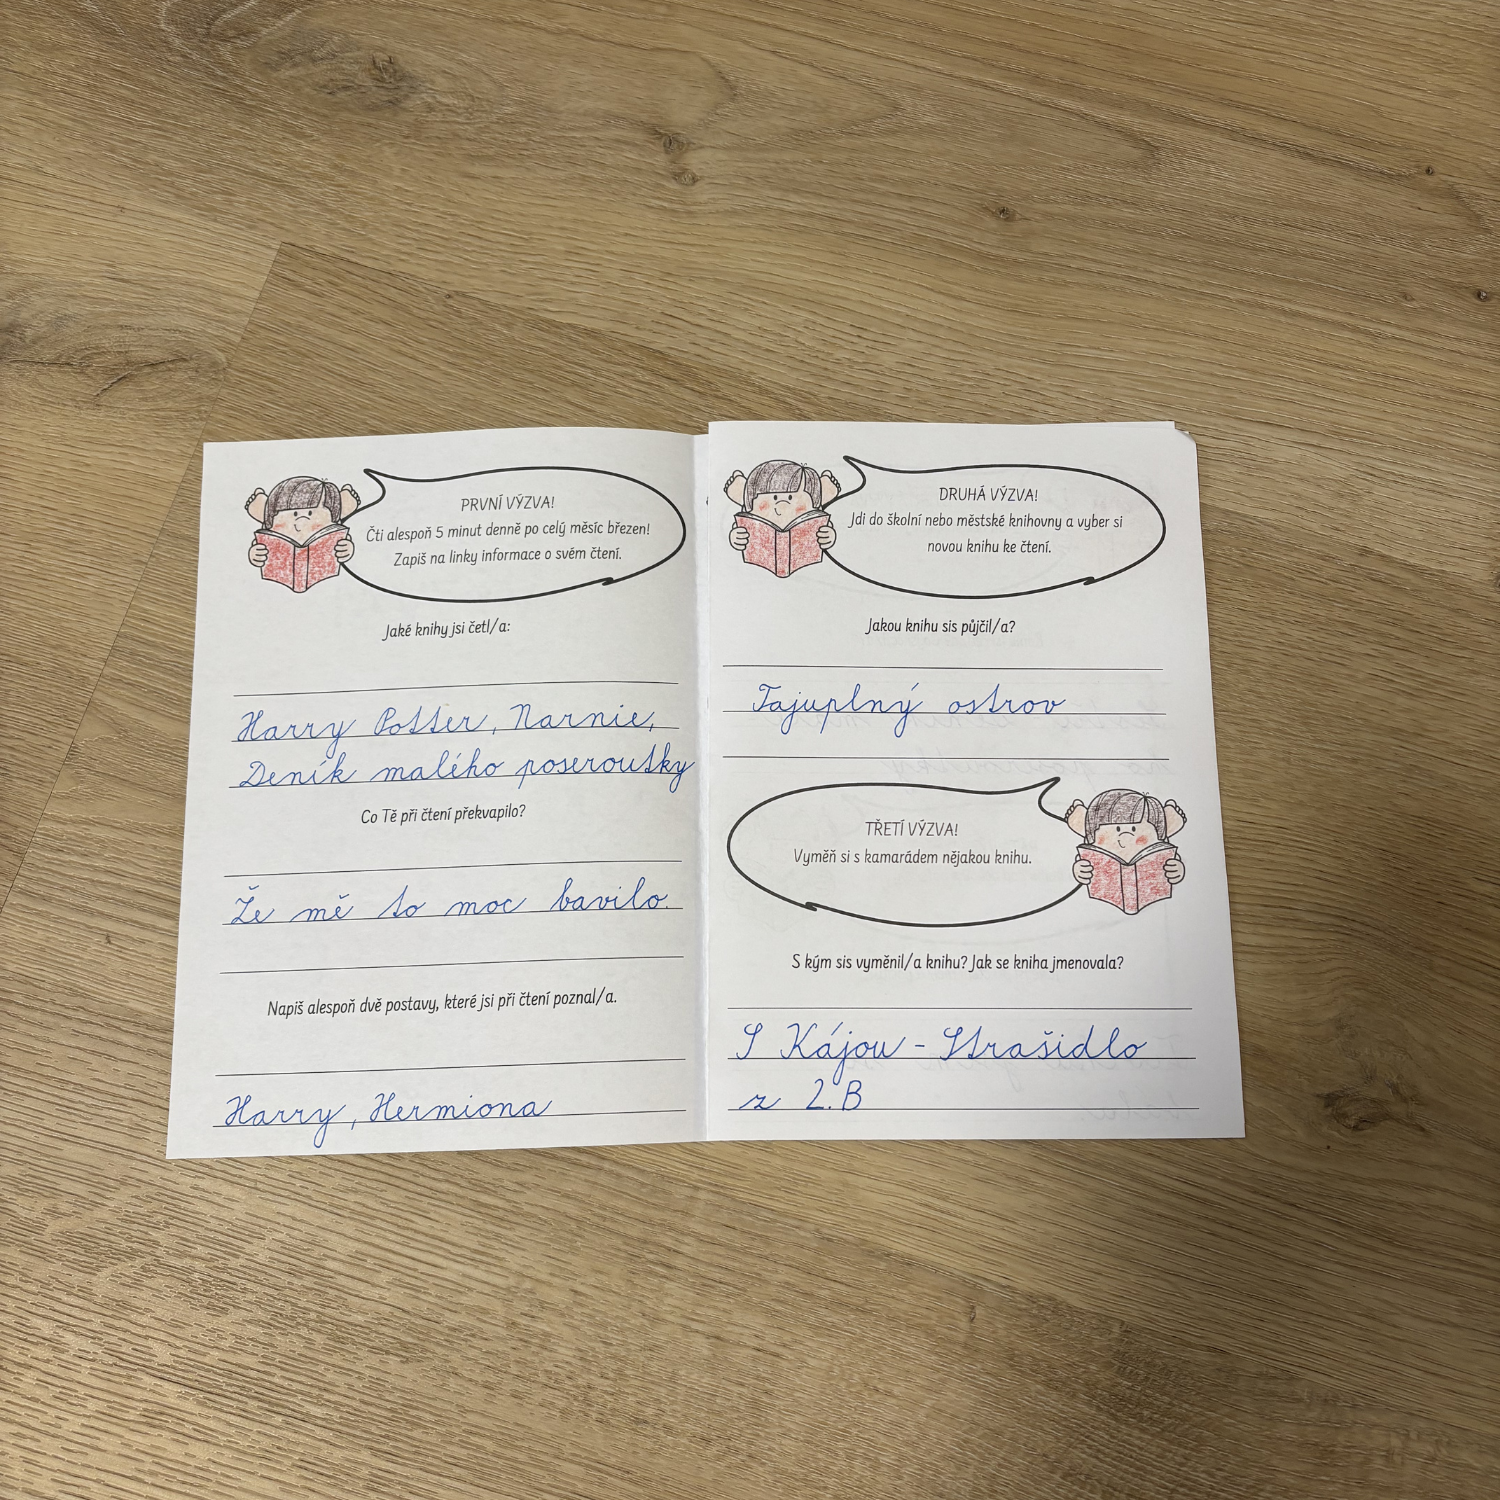 PRVNÍ VÝZVA!
Čti alespoň 5 minut denně po celý měsíc březen!
Zapiš na linky informace o svém čtení.
Jaké knihy jsi četl/a:
Harry Potter, Narnie,
Deník malého poseroutky
Co Tě při čtení překvapilo?
Že mě to moc bavilo.
Napiš alespoň dvě postavy, které jsi při čtení poznal/a.
Harry, Hermiona
DRUHÁ VÝZVA!
Jdi do školní nebo městské knihovny a vyber si
novou knihu ke čtení.
Jakou knihu sis půjčil/a?
Tajuplný ostrov
TŘETÍ VÝZVA!
Vyměň si s kamarádem nějakou knihu.
S kým sis vyměnil/a knihu? Jak se kniha jmenovala?
S Kájou - Strašidlo
z 2.B